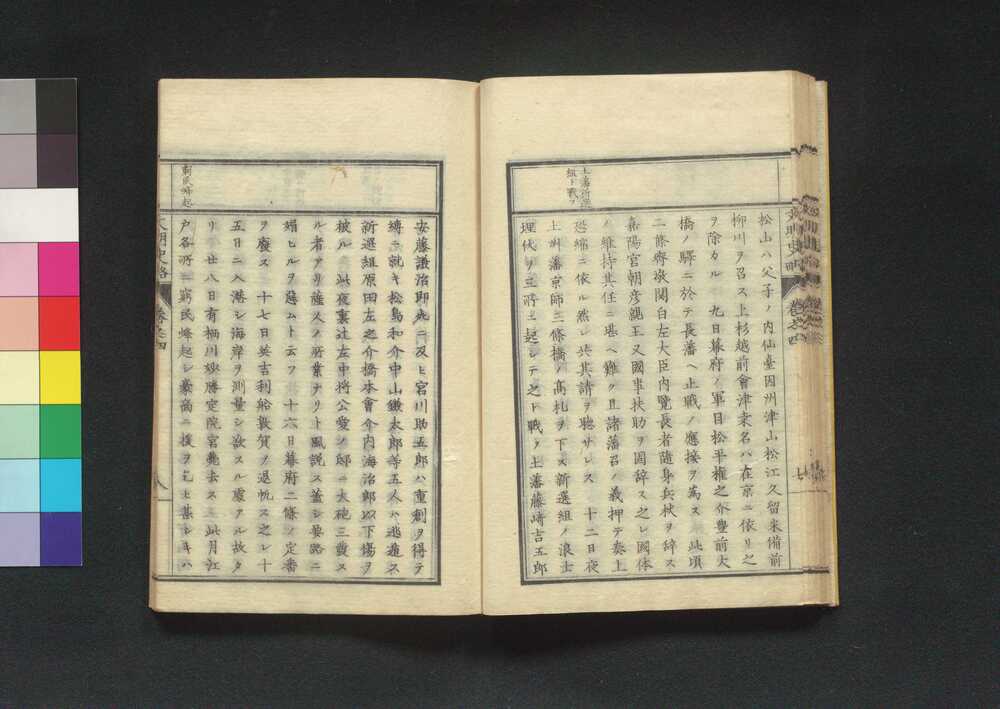 土藩新選
組ト戰フ
松山ハ父子ノ内仙臺因州津山松江久留米備前
柳川ヲ召ス上杉越前會津桑名ハ在京ニ依リ之
ヲ除カル 九日幕府ノ軍目松平權之介豊前大
橋ノ驛ニ於テ長藩ヘ止戰ノ應接ヲ為ス 此頃
二條齊敬関白左大臣内覽長者隨身兵杖ヲ辞ス
嘉陽宮朝彦親王又國事扶助ヲ固辞ス之レ國体
ノ維持其任ニ堪ヘ難ク且諸藩召ノ義押テ奏上
恐縮ニ依ル然レ共其請ヲ聴サレス 十二日夜
土州藩京師三條橋ノ高札ヲ下ス新選組ノ浪士
埋伏ヲ 時ニ起シテ之ト戰フ土藩藤﨑吉五郎
七
窮民蜂起
安藤謙治即死ニ及ヒ宮川助五郎ハ重創ヲ得テ
縛ニ就キ松島和介中山鎌太郎等五人ハ逃遁ス
新選組原田左之介橋本會介内海治郎以下傷ヲ
被ル 此夜裏辻左中将公愛ノ邸ニ大砲三發ス
ル者アリ薩人ノ所業ナリト風説ス蓋シ要路ニ
媚ヒルヲ ムト云フ 十六日幕府二條ノ定番
ヲ廢ス 十七日英吉利船敦賀ノ退帆ス之レ十
五日ニ入港シ海岸ヲ測量シ発スル處アル故ナ
リ 廿八日有栖川妙勝定院宮薨去ス 此月江
戸各所ニ窮民蜂起シ豪商ニ援ヲ乞ヒ甚シキハ
文明史略
卷之四
八